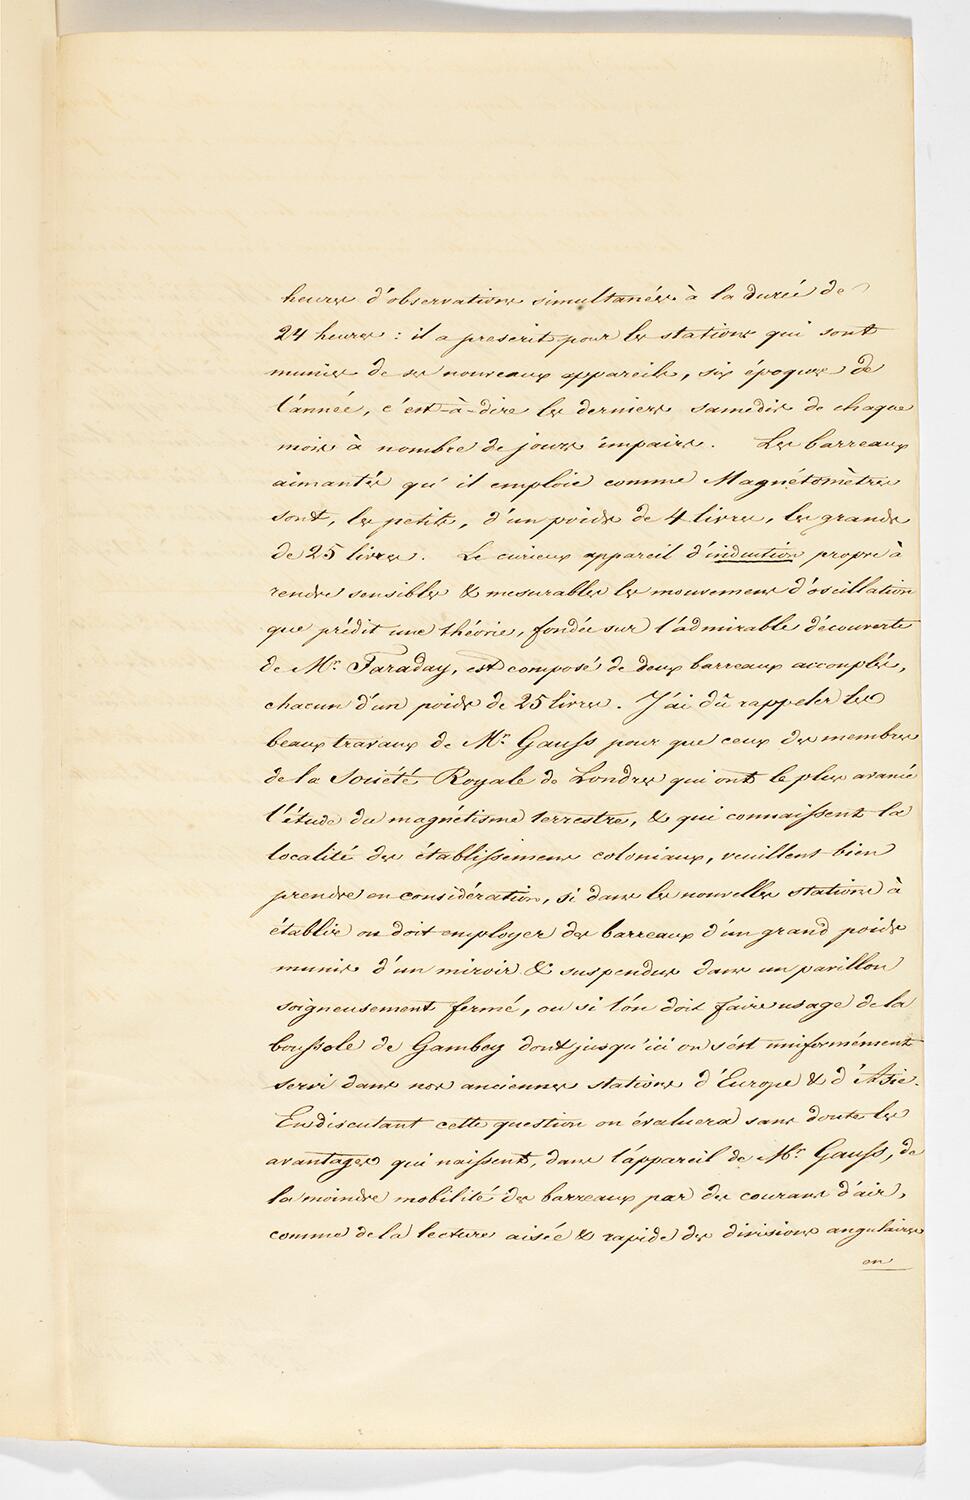 heures d'observations simultanées à la durée de
24 heures : il a prescrit pour les stations qui sont
munies de ses nouveaux appareils, six époques de
l'année, c'est-à-dire les derniers samedis de chaque
mois à nombre de jours impairs. Les barreaux
aimantés qu'il emploie comme Magnétomètres
sont, les petits, d'un poids de 4 livres, les grands
de 25 livres. Le curieux appareil d'induction propre à
rendre sensibles & mesurables les mouvemens d'oscillation
que prédit une théorie, fondée sur l'admirable découverte
de Mr. Faraday, est composé de deux barreaux accouplés,
chacun d'un poids de 25 livres. J'ai dû rappeler les
beaux travaux de Mr. Gauss pour que ceux des membres
de la Société Royale de Londres qui ont le plus avancé
l'étude du magnétisme terrestre, & qui connaissent la
localité des établissemens coloniaux, veuillent bien
prendre en considération, si dans les nouvelles stations à
établir on doit employer des barreaux d'un grand poids
munis d'un miroir & suspendus dans un pavillon
soigneusement fermé, ou si l'on doit faire usage de la
boussole de Gambey dont jusqu'ici on s'est uniformément
servi dans nos anciennes stations d'Europe & d'Asie.
En discutant cette question on évaluera sans doute les
avantages qui naissent, dans l'appareil de Mr. Gauss, de
la moindre mobilité des barreaux par des courans d'air,
comme de la lecture aisée & rapide des divisions angulaires
en